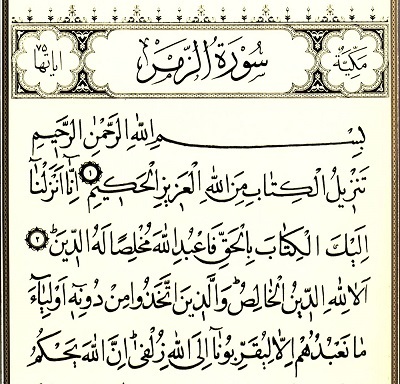 مكية سورة الزمر اياتها ٧٥
بِسْمِ اللهِ الرَّحْمٰنِ الرَّحِيمِ
تَنْزِيلُ الْكِتَابِ مِنَ اللهِ الْعَزِيزِ الْحَكِيمِ ١ اِنَّٓا اَنْزَلْنَٓا
اِلَيْكَ الْكِتَابَ بِالْحَقِّ فَاعْبُدِ اللهَ مُخْلِصًا لَهُ الدِّينَ ٢
اَلَا لِلهِ الدِّينُ الْخَالِصُ وَالَّذِينَ اتَّخَذُوا مِنْ دُونِهِٓ اَوْلِيَٓاءَ
مَا نَعْبُدُهُمْ اِلَّا لِيُقَرِّبُونَٓا اِلَى اللهِ زُلْفٰى اِنَّ اللهَ يَحْكُمُ